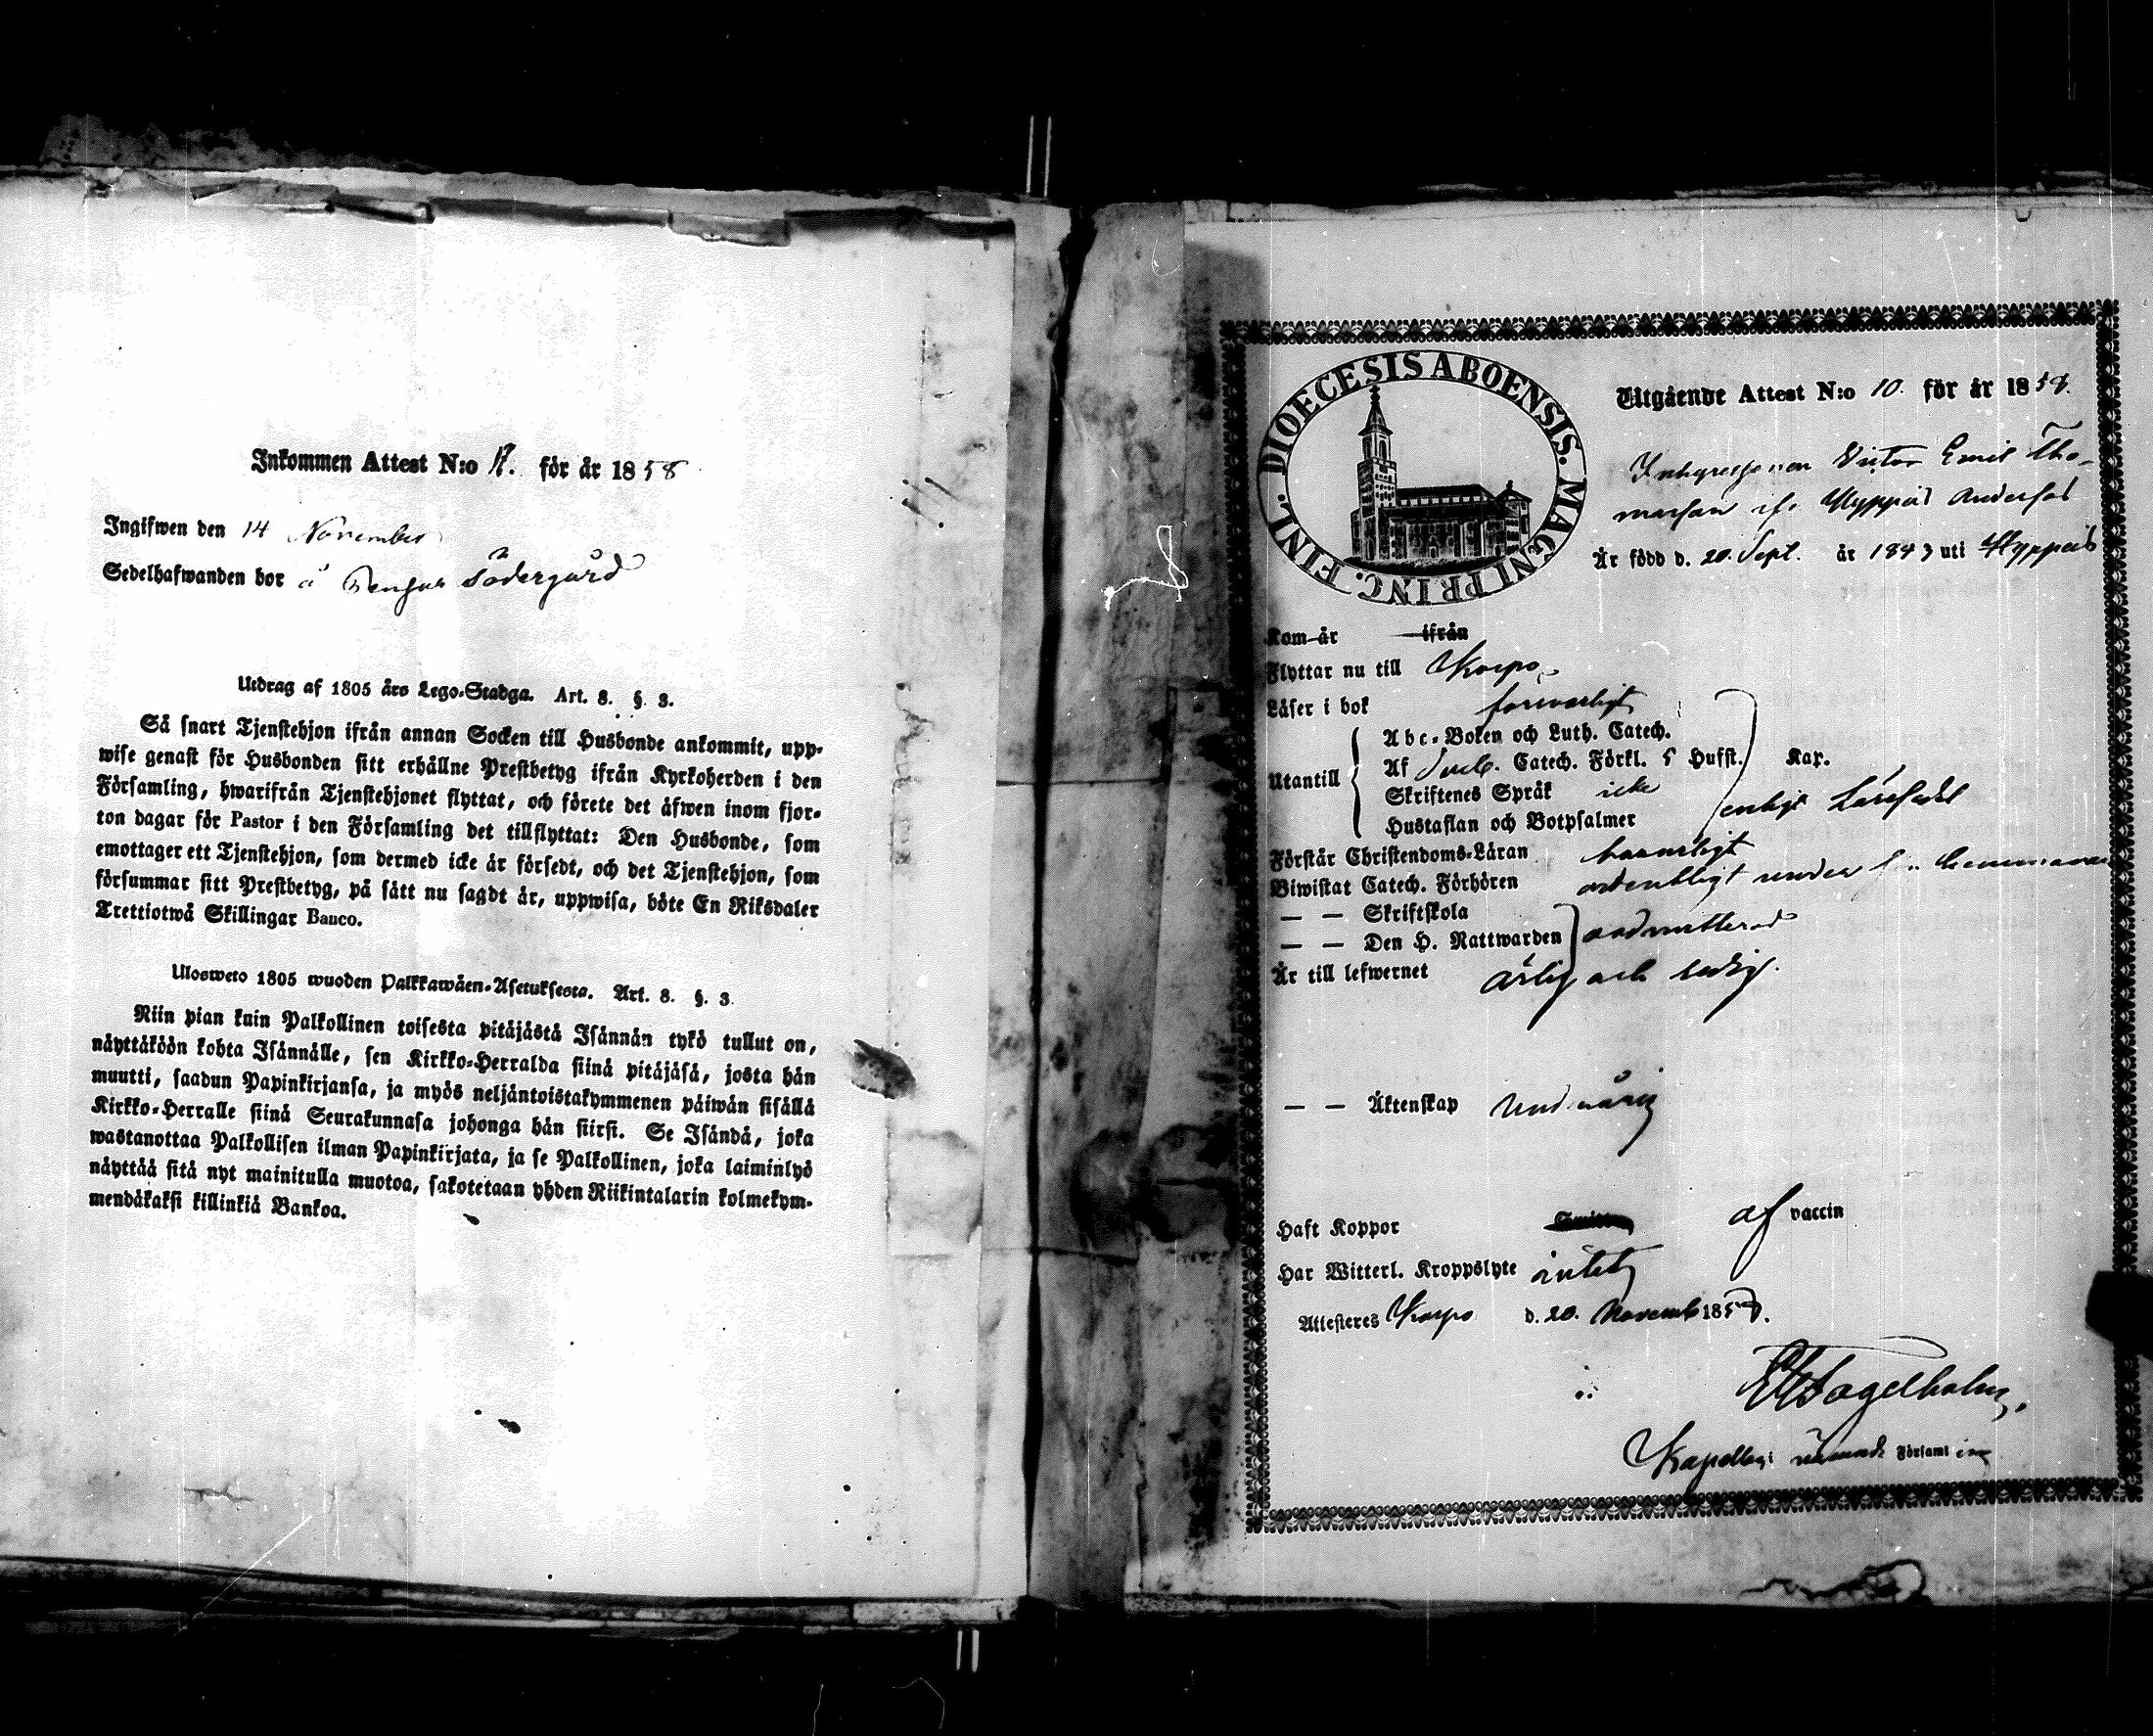 Inkommen Attest N:o 17. för år 1858
Ingifwen den 14 November
Sedelhafwanden bor å Södergård
Utdrag af 1805 års Lego-Stadga. Art. 8. §. 3.
Så snart Tjenstehjon ifrån annan Socken till Husbonde ankommit, upp-
wise genast för Husbonden sitt erhållne Prestbetyg ifrån Kyrkoherden i den
Församling, hwarifrån Tjenstehjonet flyttat, och förete det äfwen inom fjor-
ton dagar för Pastor i den Församling det tillflyttat: Den Husbonde, som
emottager ett Tjenstehjon, som dermed icke är försedt, och det Tjenstehjon, som
försummar sitt Prestbetyg, på sätt nu sagdt är, uppwisa, böte En Riksdaler
Trettiotwå Skillingar Banco.
Ulosweto 1805 wuoden Palkkawäen-Asetuksesta. Art. 8. §. 3.
Niin pian kuin Palkollinen toisesta pitäjästä Isännän tykö tullut on,
näyttäköön kohta Isännälle, sen Kirkko-Herralda siinä pitäjäsä, josta hän
muutti, saadun Papinkirjansa, ja myös neljäntoistakymmenen päiwän sisällä
Kirkko-Herralle siinä Seurakunnasa johonga hän siirsi. Se Isändä, joka
wastanottaa Palkollisen ilman Papinkirjata, ja se Palkollinen, joka laiminlyö
näyttää sitä nyt mainitulla muotoa, sakotetaan yhden Riikintalarin kolmekym-
mendäkaksi killinkiä Bankoa.
DIOECESIS ABOENSIS. MAGNI PRINC. FINL.
Utgående Attest N:o 10. för år 1858.
Victor Emil Tho-
masson if. Hyppeis Anders
Är född d. 20. Sept. år 1843 uti Hyppeis
Kom år ifrån
Flyttar nu till Korpo
Läser i bok försvarligt
Utantill
Abc-Boken och Luth. Catech.
Af Sveb. Catech. Förkl. 5 Hufst. Kap.
Skriftenes Språk icke
Hustaflan och Botpsalmer enligt Läsesedel
Förstår Christendoms-Läran
Biwistat Catech. Förhören ordentligt under
— — Skriftskola
— — Den H. Nattwarden oadmitterad
Är till lefwernet ärlig och ledig.
— — Äktenskap
Haft Koppor af vaccin
Har Witterl. Kroppslyte intet
Attesteres Korpo d. 20. Novemb 1858.
Fagelholm,
Kapellan i Församl